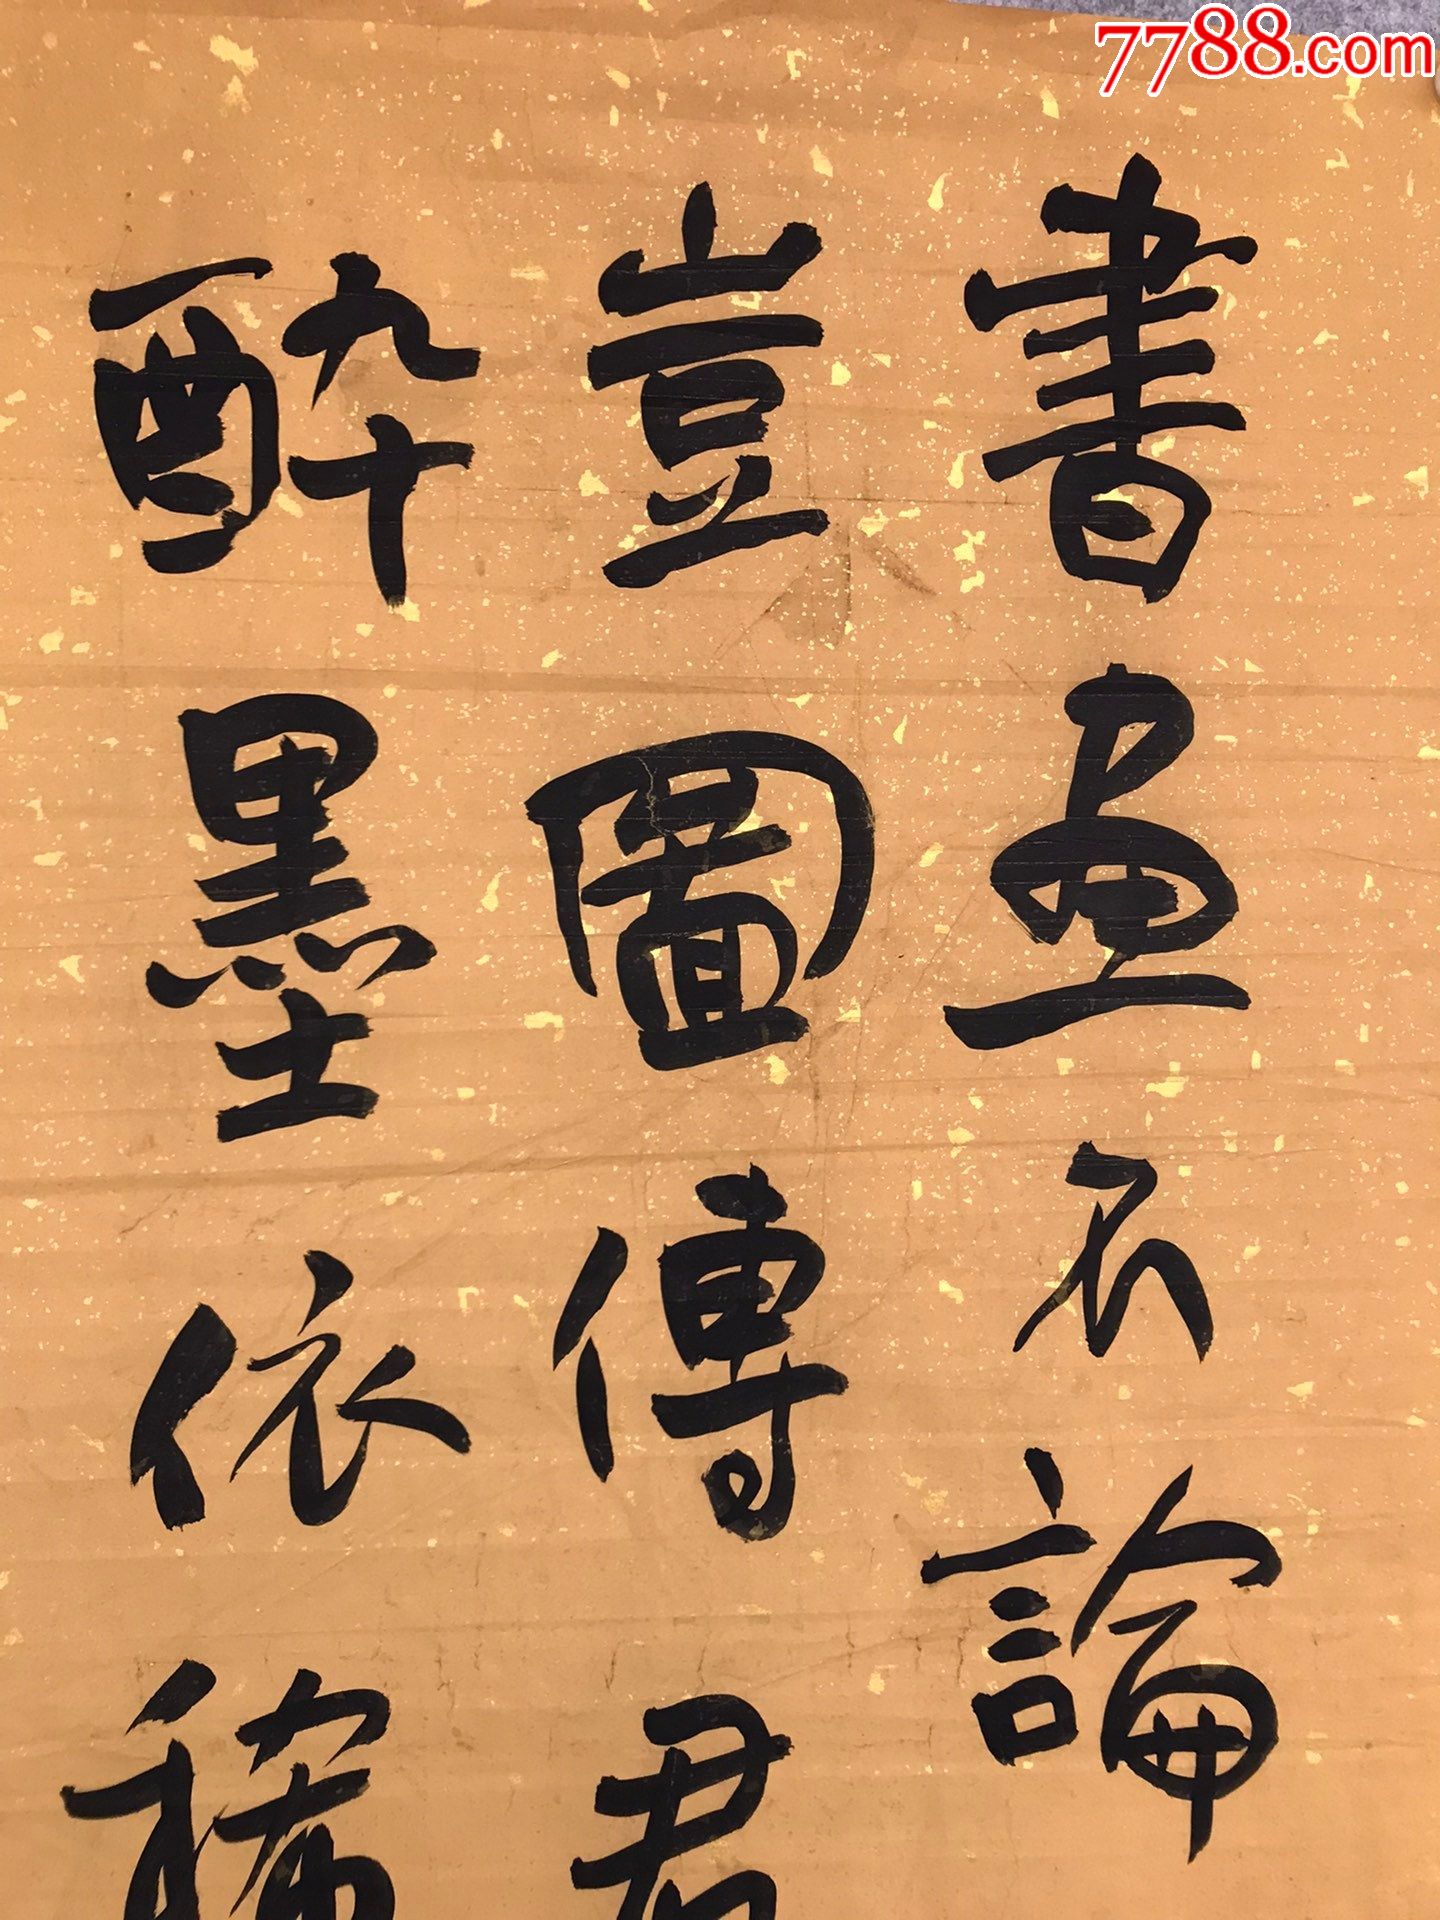 7788.com
書画不論
豈圖傳君
酔墨依稀